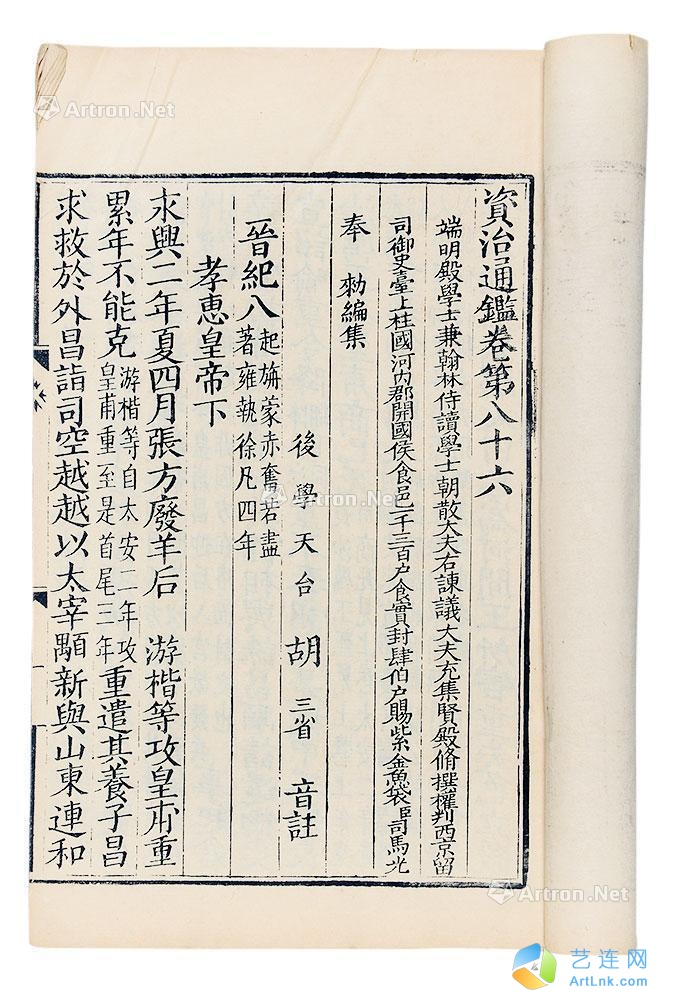 資治通鑑卷第八十六
端明殿學士兼翰林侍讀學士朝散大夫右諫議大夫充集賢殿脩撰權判西京留
司御史臺上柱國河內郡開國侯食邑一千三百户食實封肆伯户賜紫金魚袋臣司馬光
奉 勑編集
後學天台胡三省音註
晉紀八 起旃蒙赤奮若盡著雍執徐凡四年
孝惠皇帝下
永興二年夏四月張方廢羊后 游楷等攻皇甫重
累年不能克 游楷等自太安二年攻皇甫重至是首尾三年 重遣其養子昌
求救於外昌詣司空越越以太宰顒新與山東連和
Artron.Net
Artron.Net
Artron.Net
Artron.Net
艺连网
ArtLnk.com